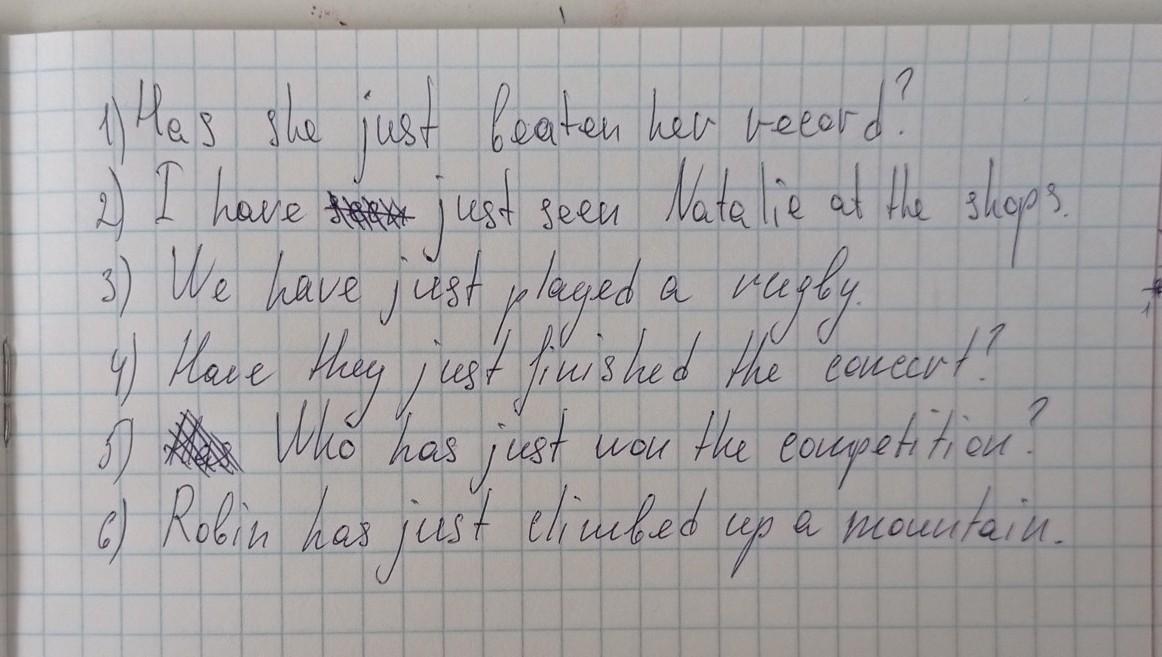 1) Has she just beaten her record?
2) I have just seen Natalie at the shops.
3) We have just played a rugby.
4) Have they just finished the concert?
5) Who has just won the competition?
6) Robin has just climbed up a mountain.